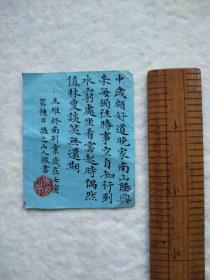 中歲頗好道晚家南山陲興
來每獨往勝事空自知行到
水窮處坐看雲起時偶然
值林叟談笑無還期
王維終南別業歲在壬
日
山人
書